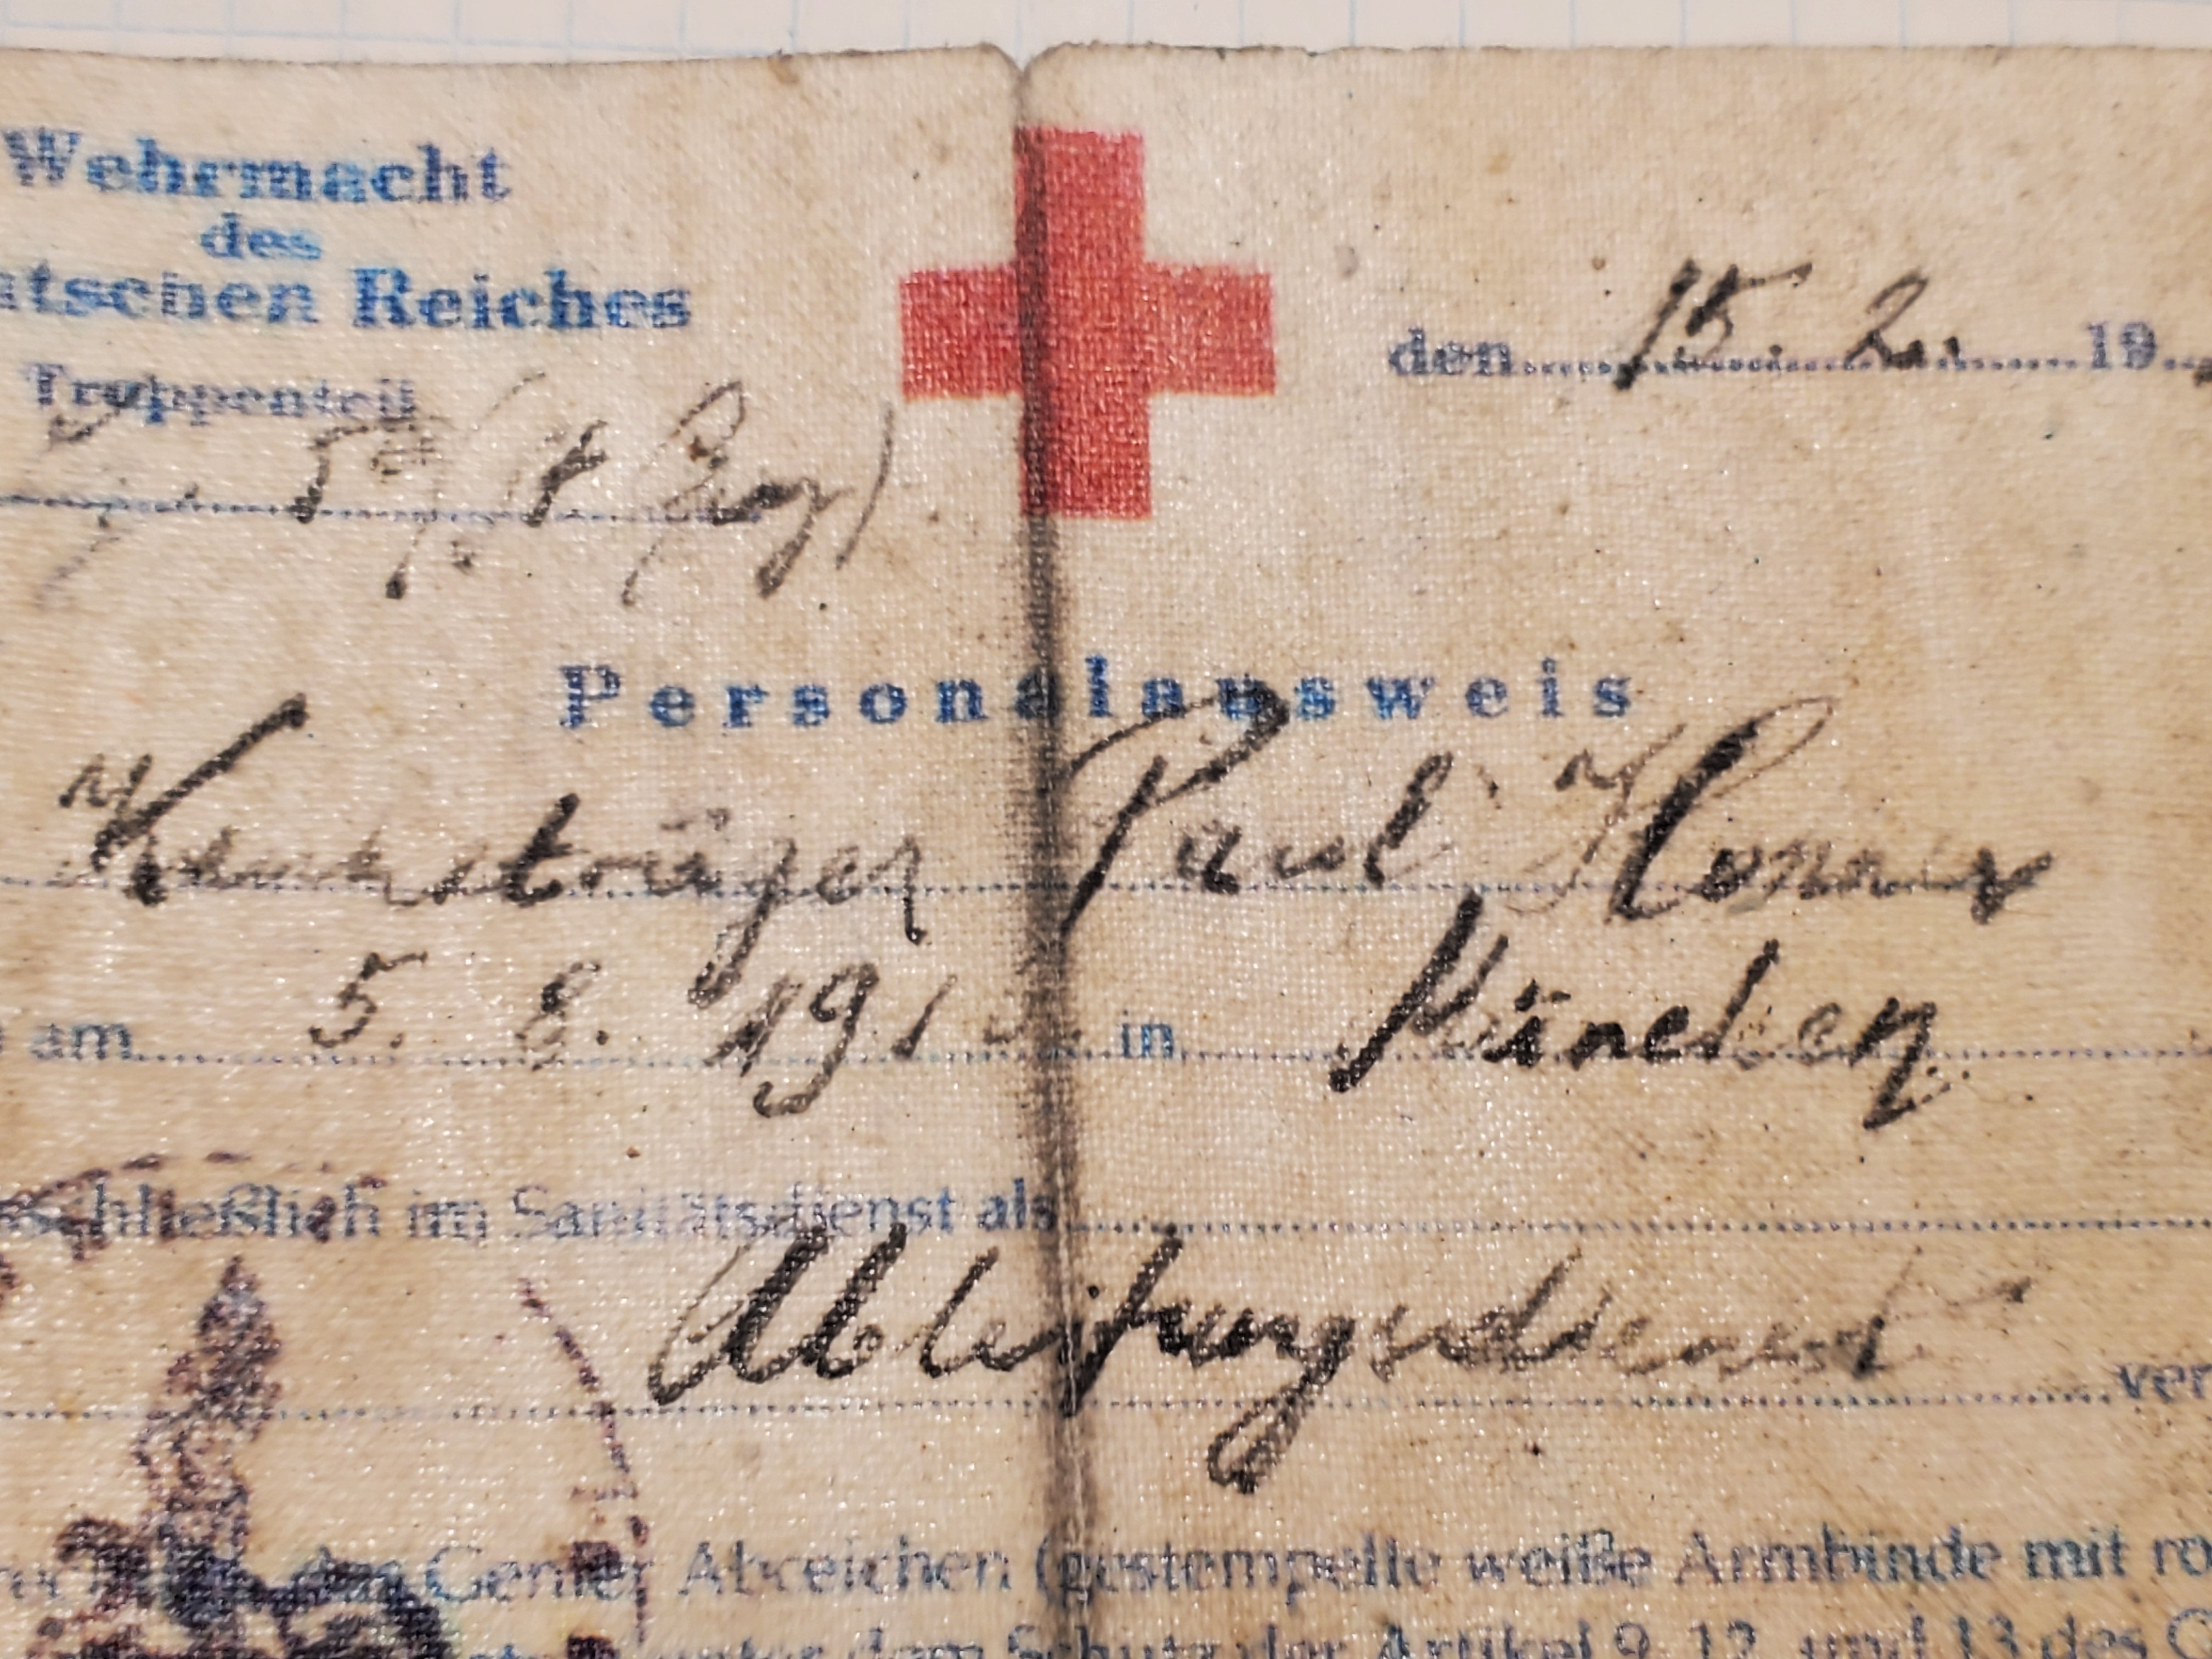 Wehrmacht
des
utschen Reiches
Truppenteil
den 15. 2. 19
Personalausweis
Krankenträger Paul
am 5. 8. 191 in München
schließlich im Sanitätsdienst als
ver
Genfer Abzeichen (gestempelte weiße Armbinde mit ro
unter dem Schutz der Artikel 9, 12, und 13 des G